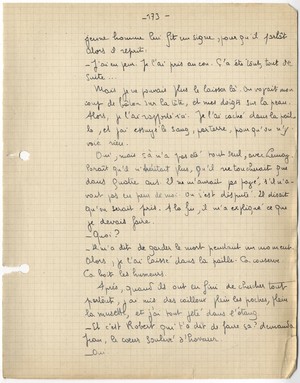 - 173 -
jeune homme lui fit un signe, pour qu'il parlât
alors il reprit.
- J'ai eu peur. Je l'ai pris au cou. Ç'a été tout, tout de
suite...
Mais je ne pouvais plus le laisser là. On voyait mon
coup de bâton sur la tête, et mes doigts sur la peau.
Alors, je l'ai rapporté. Je l'ai caché dans la pail-
le, et j'ai essuyé le sang, par terre, pour qu'on n'y
voie rien.
Oui, mais ça n'a pas été tout seul, avec
Paraît qu'il n'héritait plus, qu'il ne toucherait que
dans quatre ans. Il ne m'aurait pas payé, s'il n'a-
vait pas eu peur de moi. On s'est disputé. Il disait
qu'on serait pris. A la fin, il m'a expliqué ce que
je devais faire.
- Quoi?
- Il m'a dit de garder le mort pendant un moment.
Alors, je l'ai laissé dans la paille. Ça conserve.
Ça boit les humeurs.
Après, quand ils ont eu fini de chercher tout
partout, j'ai mis des cailloux plein les poches, plein
la musette, et j'ai tout jeté dans l'étang
- Et c'est Robert qui t'a dit de faire ça? demanda
Jean, le cœur soulevé d'horreur.
- Oui